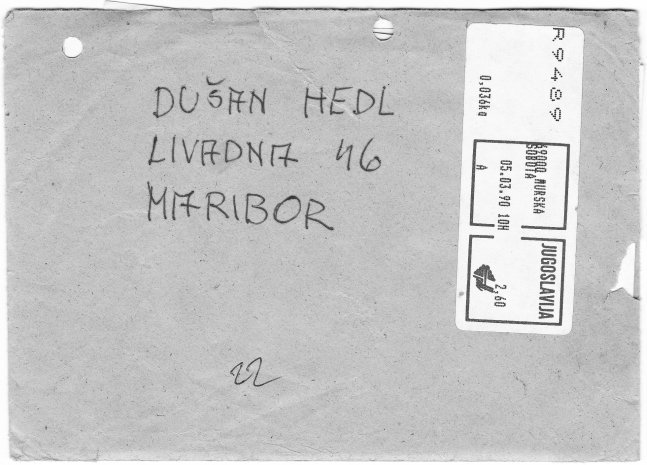 DUŠAN HEDL
LIVADNA 46
MARIBOR
22
R9489
0,036kg
69000 MURSKA
SOBOTA
05.03.90 10H
A
JUGOSLAVIJA
2,60